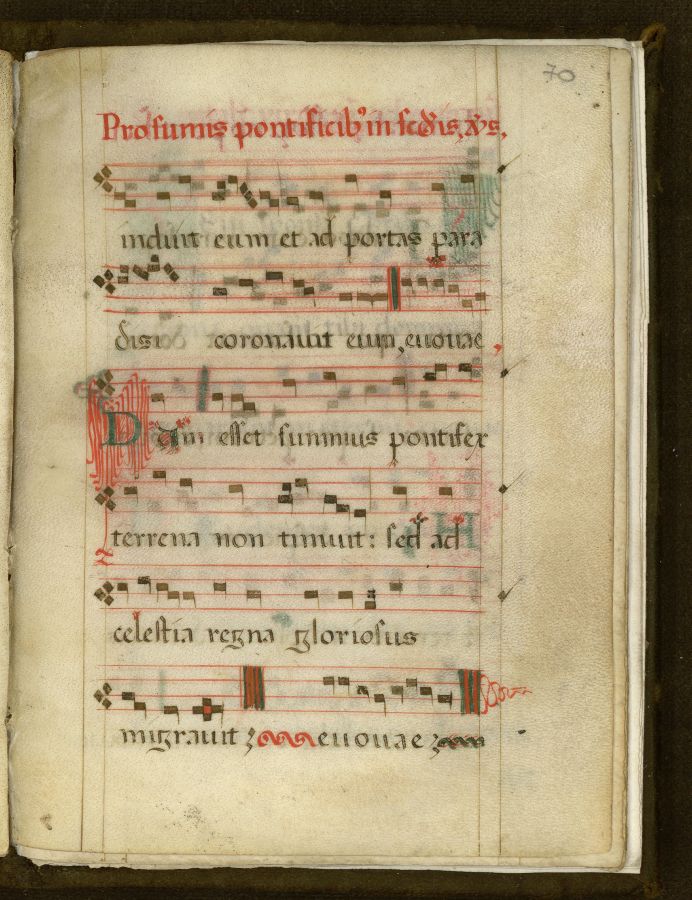 70
Pro sumis pontificib⁹ in sc̃dis, v̅s.
induit eum et ad portas para
disi coronauit eum, euouae
Dum esset summus pontifex
terrena non timuit: sed ad
celestia regna gloriosus
migrauit euouae